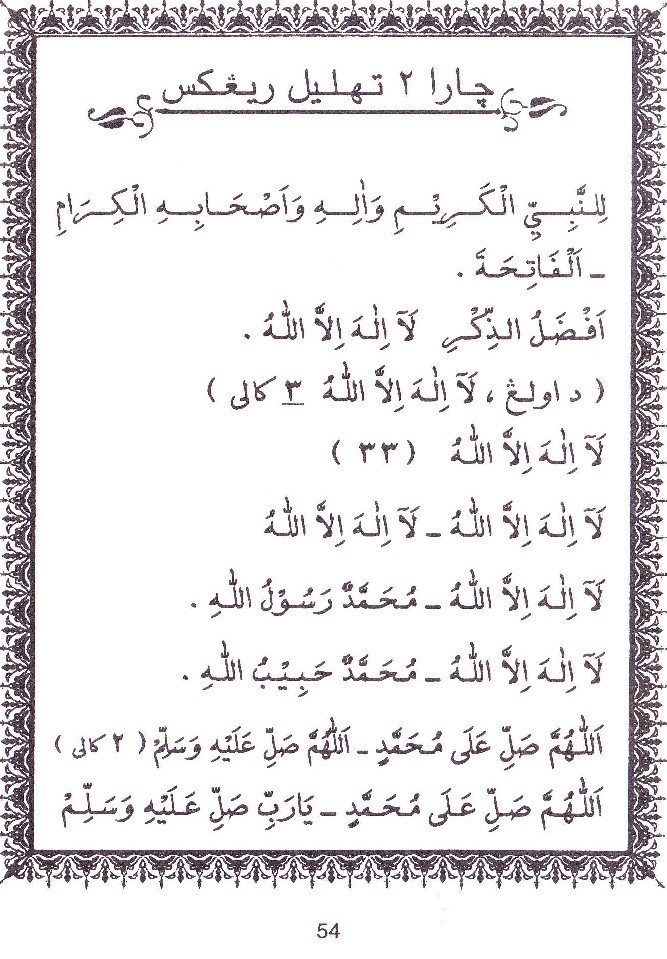 چارا ٢ تهليل ريڠكس
لِلنَّبِـيِّ الْكَرِيْمِ وَاٰلِهِ وَاَصْحَابِهِ الْكِرَامِ
ـ اَلْفَاتِحَةَ .
اَفْضَلُ الذِّكْرِ لَآ اِلٰهَ اِلاَّ اللّٰهُ .
( د اولڠ ، لَآ اِلٰهَ اِلاَّ اللّٰهُ ٣ كالى )
لَآ اِلٰهَ اِلاَّ اللّٰهُ ( ٣٣ )
لَآ اِلٰهَ اِلاَّ اللّٰهُ ـ لَآ اِلٰهَ اِلاَّ اللّٰهُ
لَآ اِلٰهَ اِلاَّ اللّٰهُ ـ مُحَمَّدٌ رَسُوْلُ اللّٰهِ .
لَآ اِلٰهَ اِلاَّ اللّٰهُ ـ مُحَمَّدٌ حَبِيْبُ اللّٰهِ .
اَللّٰهُمَّ صَلِّ عَلَى مُحَمَّدٍ ـ اَللّٰهُمَّ صَلِّ عَلَيْهِ وَسَلِّمْ ( ٢ كالى )
اَللّٰهُمَّ صَلِّ عَلَى مُحَمَّدٍ ـ يَارَبِّ صَلِّ عَلَيْهِ وَسَلِّمْ
54